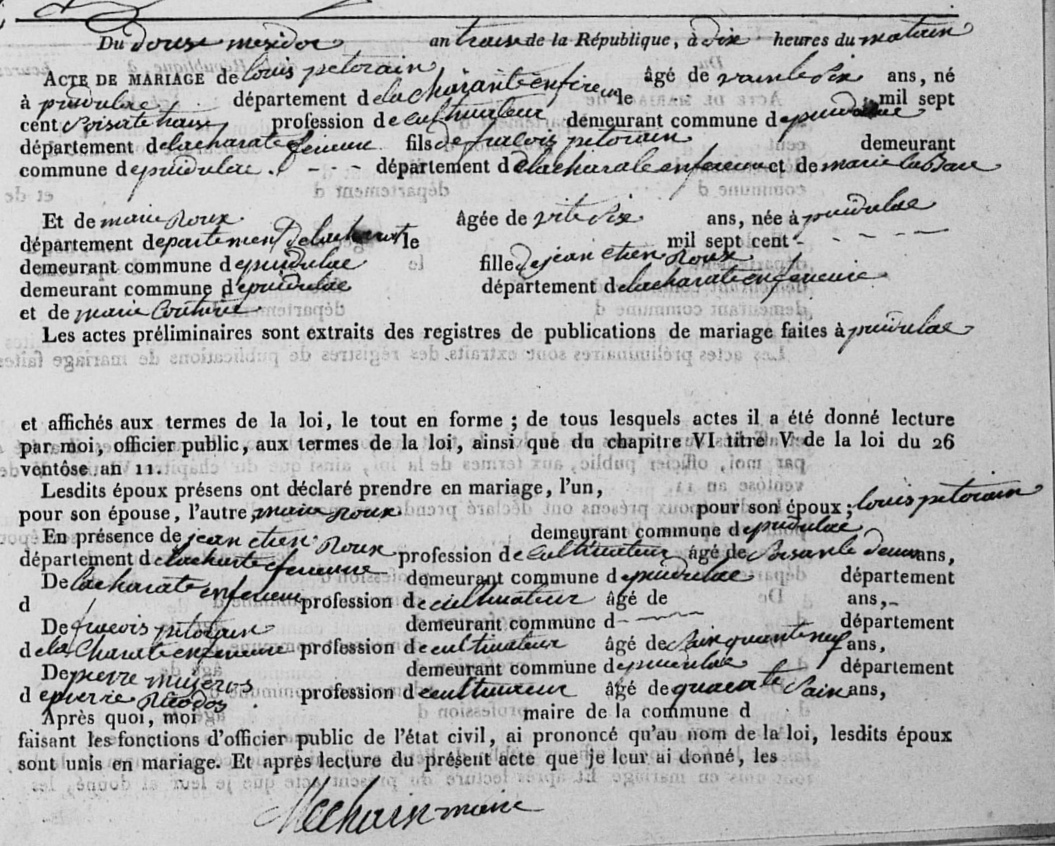 Du douse mesidor an traise de la République, à dix heures du matain
ACTE DE MARIAGE de louis petorain âgé de vainte six ans, né
à puidulac département de la charante enfireur le mil sept
cent profession de cultivateur demeurant commune de puidulac
département de la charate fils de fracois petorain demeurant
commune de puidulac . - - - département de la charate enferieure et de marie
Et de marie Roux âgée de vite six ans, née à puidulac
département departement de la charante le mil sept cent - - - -
demeurant commune de puidulac fille de jean etien Roux
demeurant commune de puidulac département de lacharate enferieure
et de marie Couture
Les actes préliminaires sont extraits des registres de publications de mariage faites à puidulac
et affichés aux termes de la loi, le tout en forme ; de tous lesquels actes il a été donné lecture
par moi, officier public, aux termes de la loi, ainsi que du chapitre VI titre V de la loi du 26
ventôse an 11.
Lesdits époux présens ont déclaré prendre en mariage, l'un, louis petorain
pour son épouse, l'autre, marie Roux pour son époux ;
En présence de jean etien Roux demeurant commune de puidulac
département de profession de cultivateur âgé de ans,
De lacharate enferieure demeurant commune de puidulac département
d profession de cultivateur âgé de ans,
De fracois petorain demeurant commune d département
de la Charate enferieure profession de cultivateur âgé de sainquante neuf ans,
De pierre demeurant commune de puidulac département
de pierre profession de âgé de quarante sain ans,
Après quoi, moi maire de la commune d
faisant les fonctions d'officier public de l'état civil, ai prononcé qu'au nom de la loi, lesdits époux
sont unis en mariage. Et après lecture du présent acte que je leur ai donné, les
maire